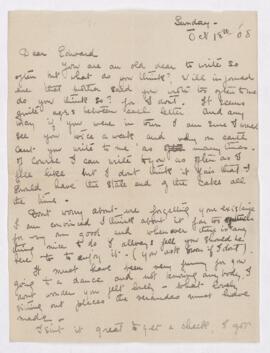 Sunday -
Oct 18th '08
Dear Edward
You are an old dear to write so
often but what do you think? Will informed
me that mother said you wrote to often to me
do you think so? for I don't. It seems
quite ages between each letter and any
way if you were in town I am sure I would
see you twice a week and why on earth
can't you write to me as many times.
Of course I can write to you as often as I
feel like but I don't think it fair that I
should have the stale end of the cakes all
the time.
Don't worry about me forgetting your existence
I am convinced I think about it far to
for my own good and whenever they is any
thing nice to do I always feel you should be
here to enjoy it. (you ask Irene if I don't)
It must have been very funny for you
going to a dance and not knowing any body, I
don't wonder you felt lonely - what lovely
sitting out places the verandas must have
made -
Isn't it great to get a check, I got